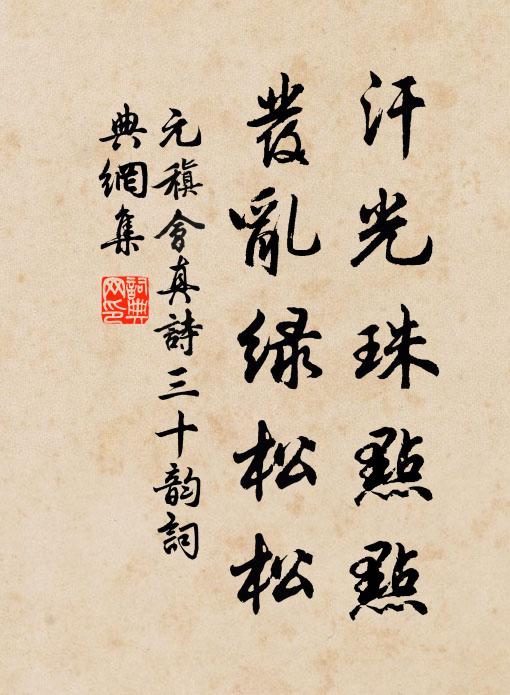 汗光珠點點
發亂綠松松
元稹會真詩三十韵詞
典網集
詞典網印